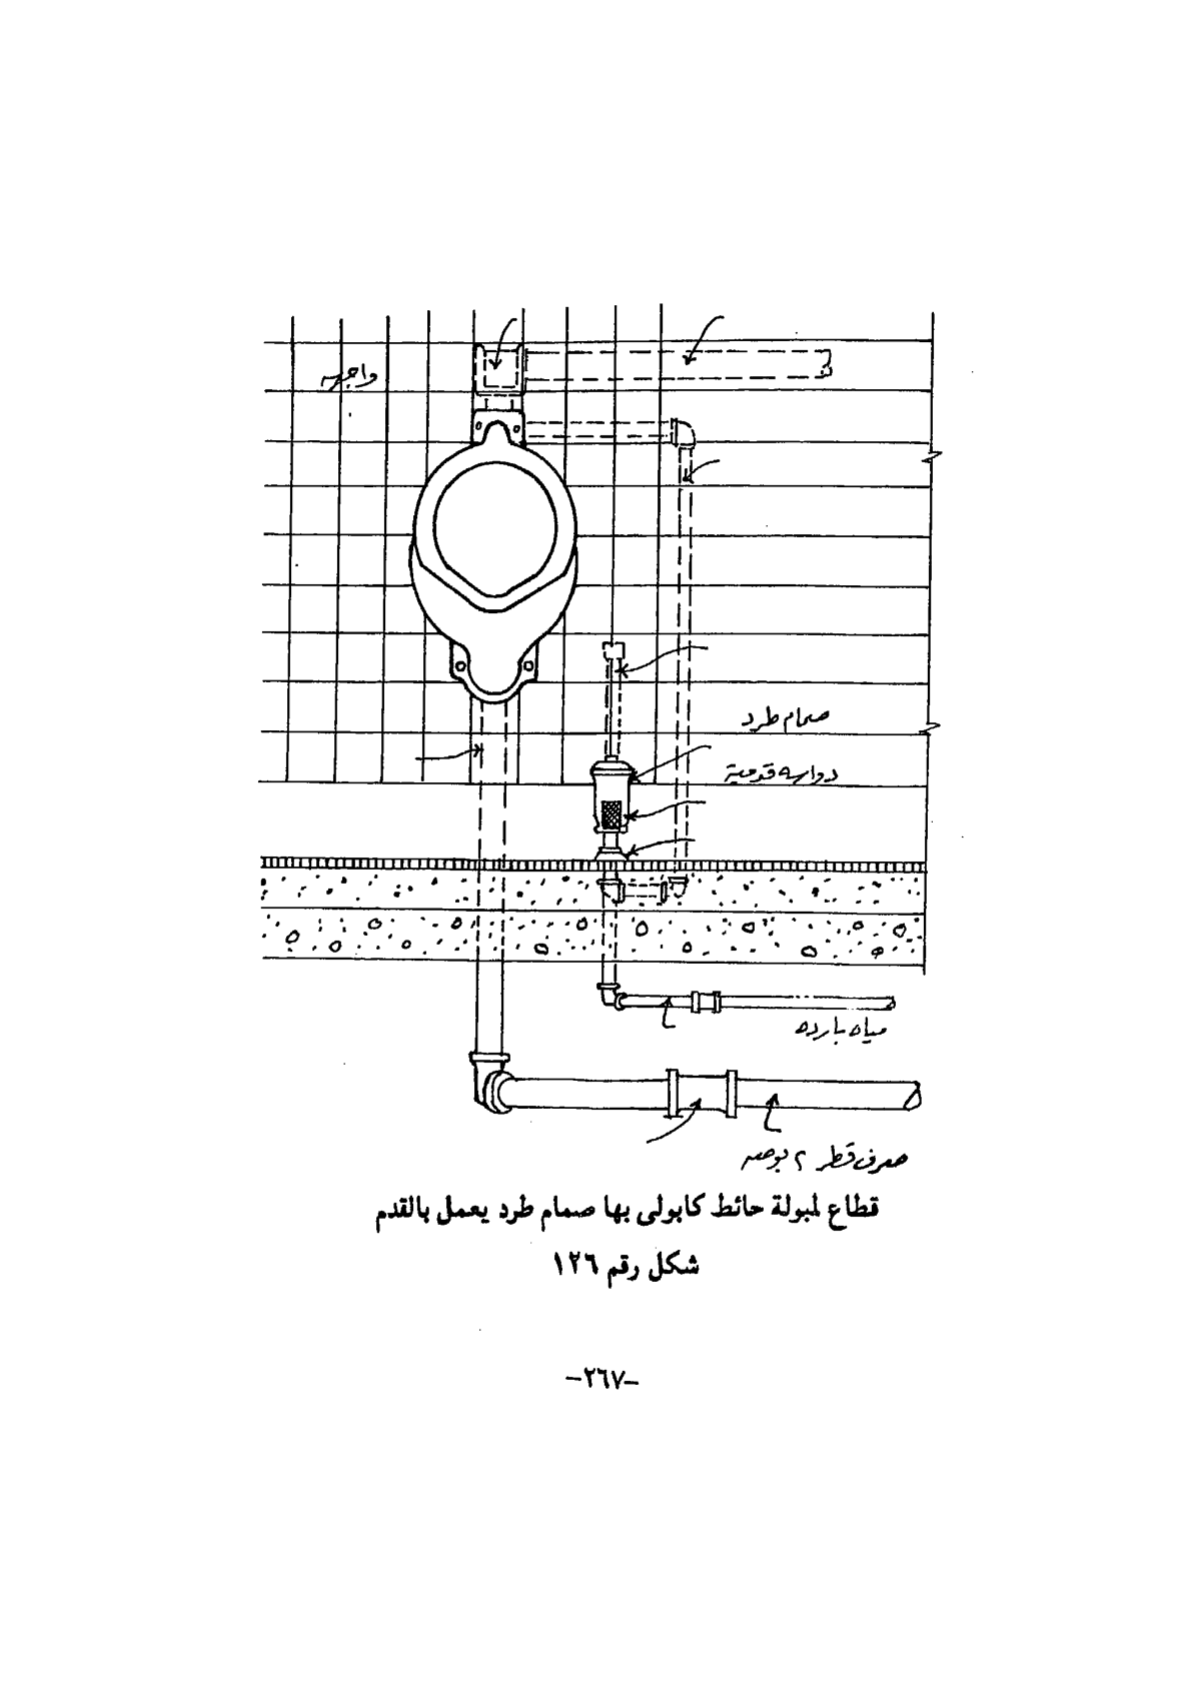 واجهه
صمام طرد
دواسه قدمية
مياه بارده
صرف قطر ٢ بوصه
قطاع لمبولة حائط كابولى بها صمام طرد يعمل بالقدم
شكل رقم ١٢٦
-٢٦٧-